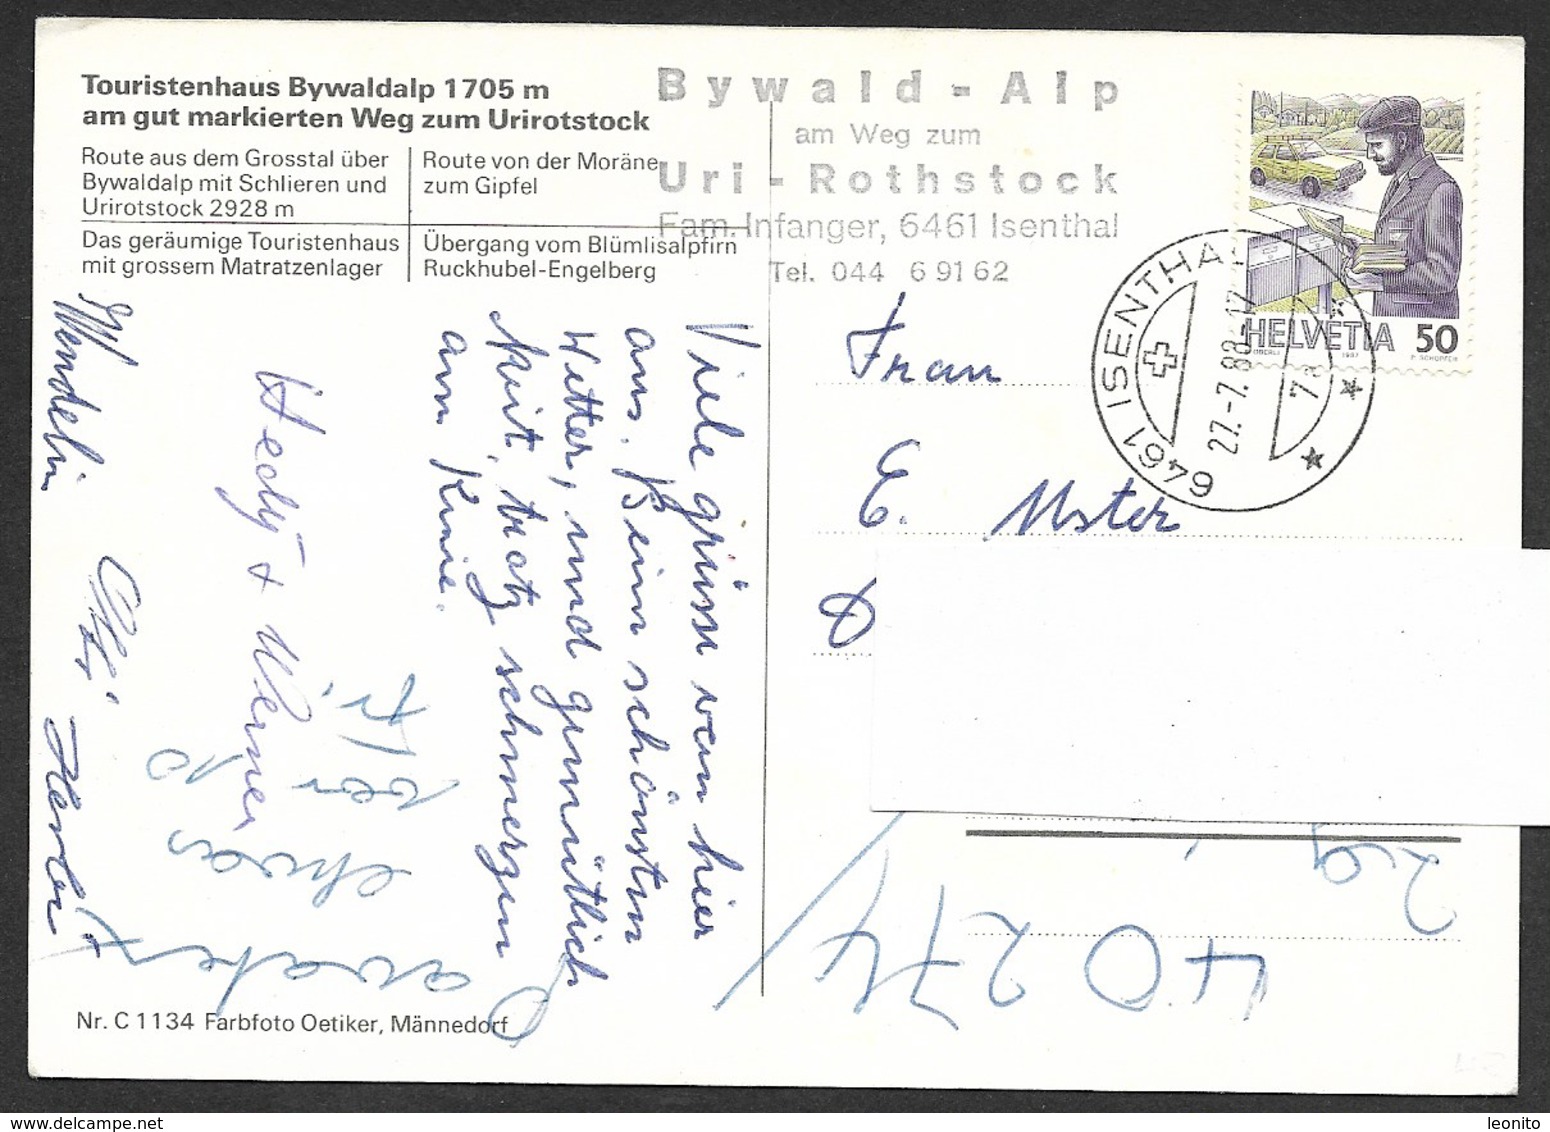 Touristenhaus Bywaldalp 1705 m
am gut markierten Weg zum Urirotstock
Route aus dem Grosstal über
Bywaldalp mit Schlieren und
Urirotstock 2928 m
Route von der Moräne
zum Gipfel
Das geräumige Touristenhaus
mit grossem Matratzenlager
Übergang vom Blümlisalpfirn
Ruckhubel-Engelberg
Bywald-Alp
am Weg zum
Uri-Rothstock
Fam. Infanger, 6461 Isenthal
Tel. 044 6 91 62
HELVETIA 50
OBERLI 1987 P. SCHOPFER
6461 ISENTHAL
27.-7.88-17
Frau
E. Uster
D
Viele grüsse von hier
aus. Beim schönstem
Wetter, und gemütlich
keit, trotz schmerzen
am Knie.
Hedy + Werner
Wendelin
40 274
Zug
etwas
Nr. C 1134 Farbfoto Oetiker, Männedorf
leonito